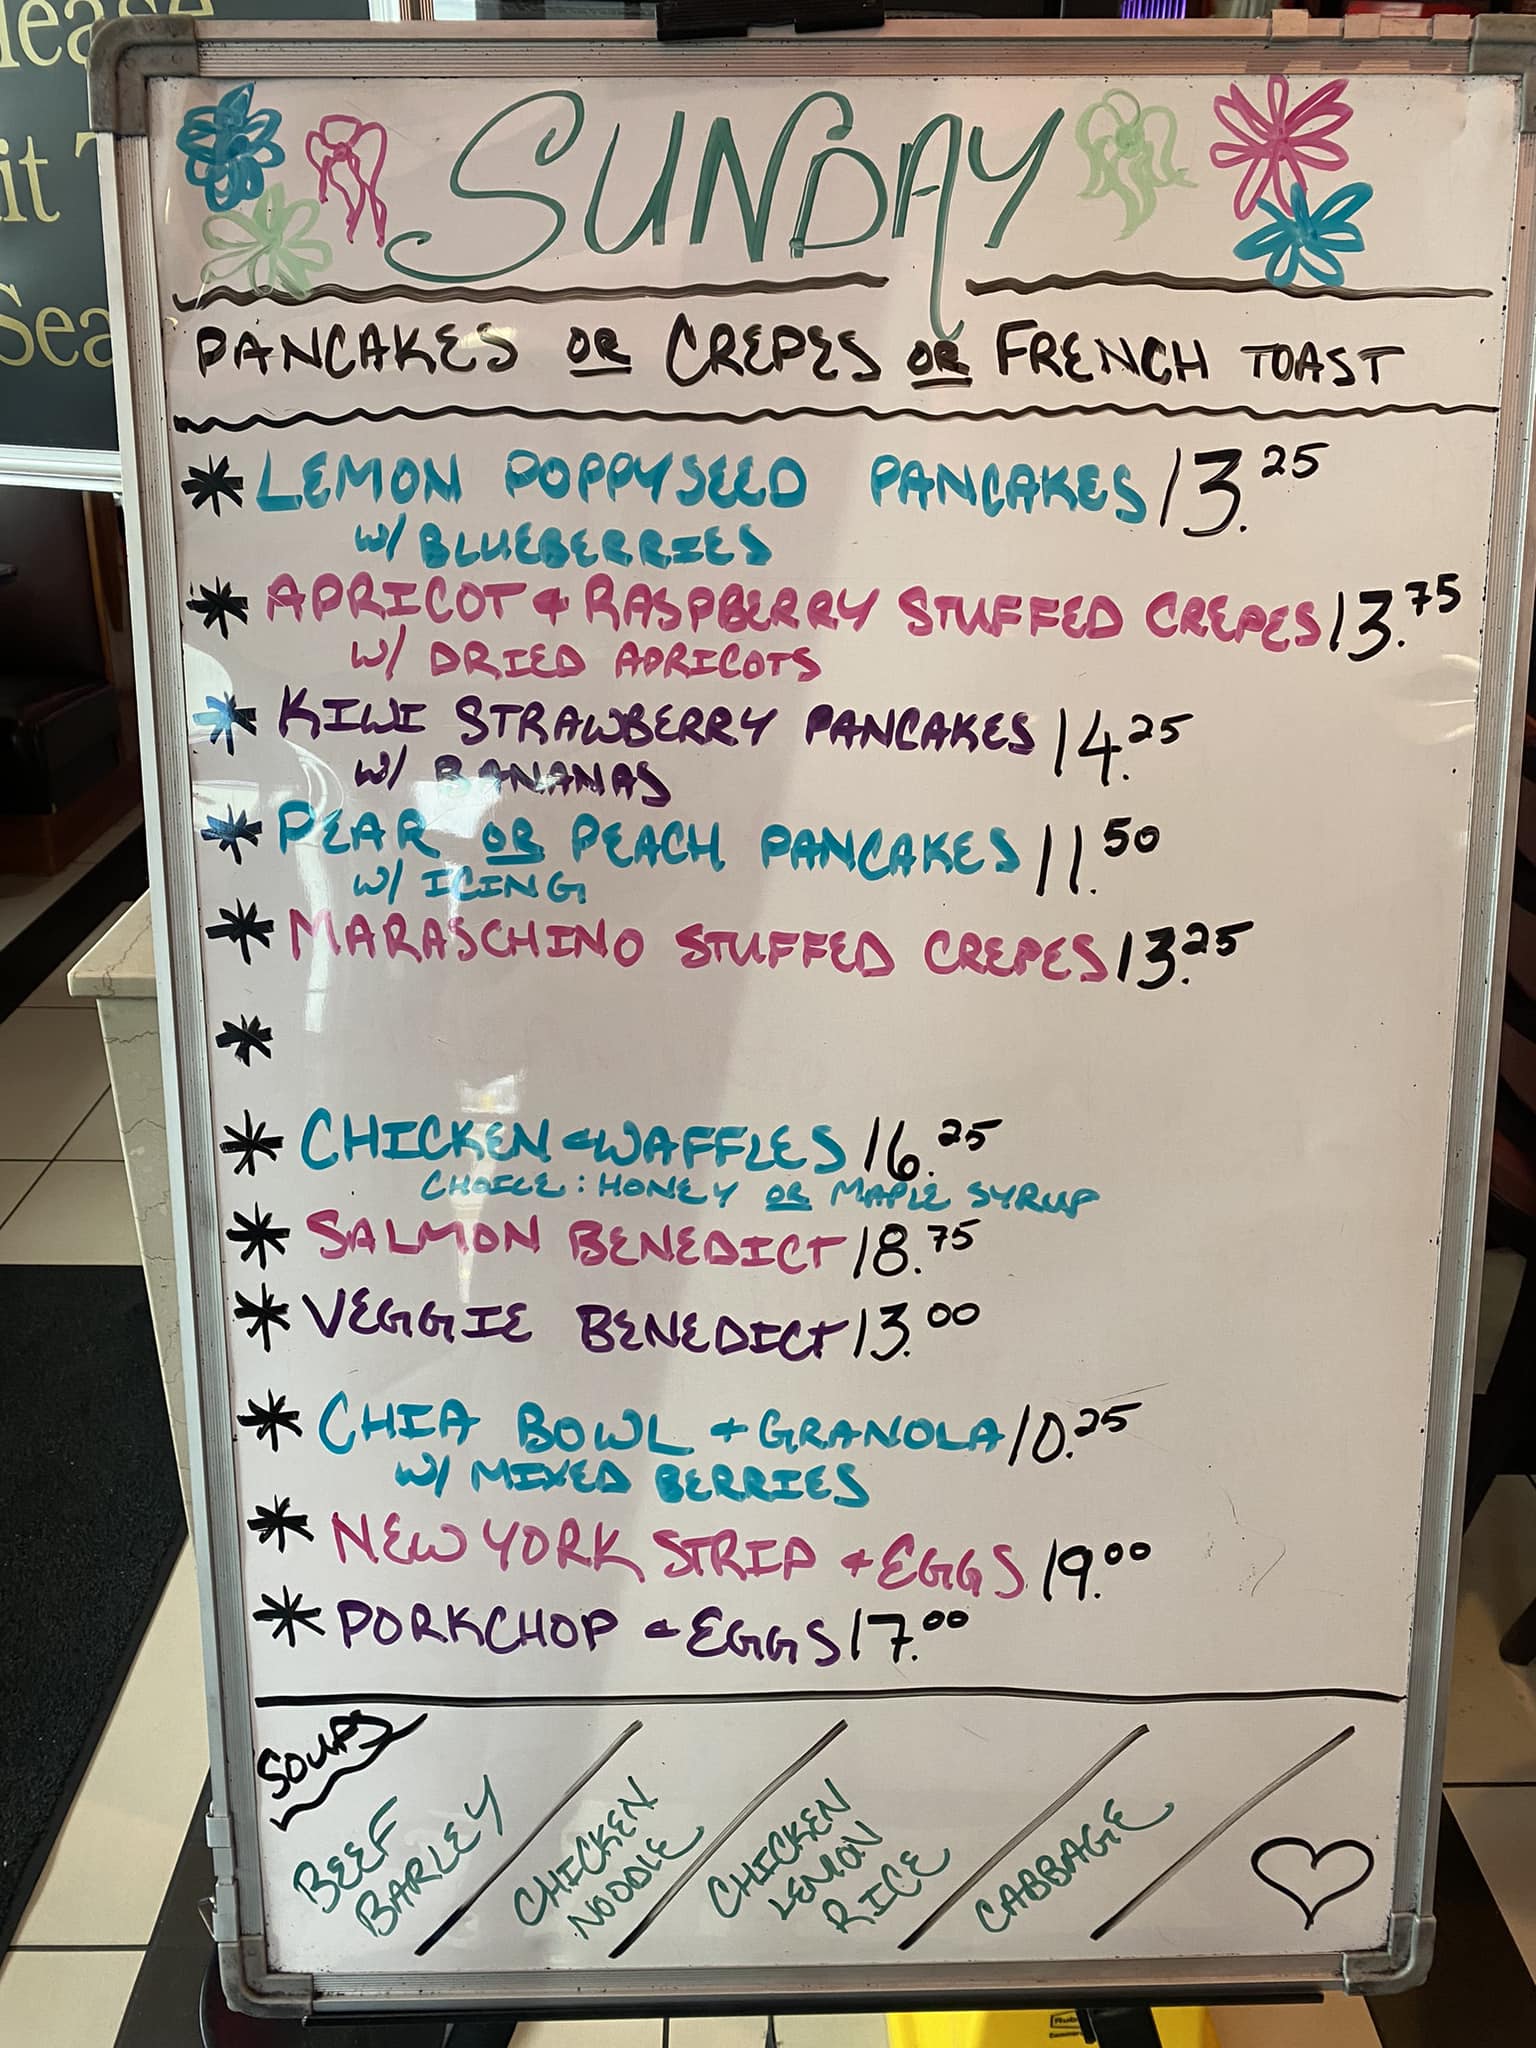 lease
it
Sea
SUNDAY
PANCAKES OR CREPES OR FRENCH TOAST
* LEMON POPPYSEED PANCAKES 13.25
W/ BLUEBERRIES
* APRICOT & RASPBERRY STUFFED CREPES 13.75
W/ DRIED APRICOTS
* KIWI STRAWBERRY PANCAKES 14.25
W/ BANANAS
* PEAR OR PEACH PANCAKES 11.50
W/ ICING
* MARASCHINO STUFFED CREPES 13.25
*
* CHICKEN & WAFFLES 16.25
CHOICE: HONEY OR MAPLE SYRUP
* SALMON BENEDICT 18.75
* VEGGIE BENEDICT 13.00
* CHIA BOWL & GRANOLA 10.25
W/ MIXED BERRIES
* NEW YORK STRIP & EGGS 19.00
* PORKCHOP & EGGS 17.00
SOUPS
BEEF
BARLEY
CHICKEN
NOODLE
CHICKEN
LEMON
RICE
CABBAGE